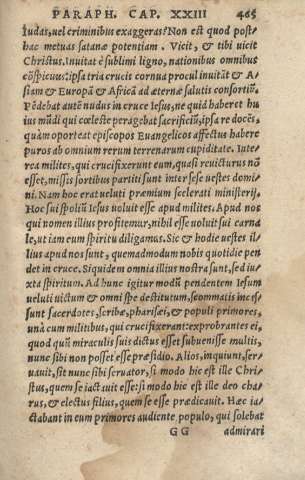 PARAPH. CAP. XXIII 465
Iudas, uel criminibus exaggeras? Non est quod post-
hac metuas satanæ potentiam. Vicit, & tibi uicit
Christus. Inuitat è sublimi ligno, nationibus omnibus
cōspicuus: ipsa tria crucis cornua procul inuitāt & A-
siam & Europā & Africā ad æternæ salutis consortiū.
Pēdebat autē nudus in cruce Iesus, ne quid haberet hu
ius mūdi qui cœleste peragebat sacrificiū, ipsa re docēs,
quàm oporteat episcopos Euangelicos affectus habere
puros ab omnium rerum terrenarum cupiditate. Iute-
rea milites, qui crucifixerunt eum, quasi reuicturus nō
esset, missis sortibus partiti sunt inter sese uestes domi-
ni. Nam hoc erat ueluti præmium scelerati ministerij.
Hoc sui spoliū Iesus uoluit esse apud milites. Apud nos
qui nomen illius profitemur, nihil esse uoluit sui carna
le, ut iam eum spiritu diligamus. Sic & hodie uestes il-
lius apud nos sunt, quemadmodum nobis quotidie pen
det in cruce. Siquidem omnia illius nostra sunt, sed iu-
xta spiritum. Ad hunc igitur modū pendentem Iesum
ueluti uictum & omni spe destitutum, scommatis inces-
sunt sacerdotes, scribæ, pharisæi, & populi primores,
unà cum militibus, qui crucifixerant: exprobrantes ei,
quod quū miraculis suis dictus esset subuenisse multis,
nunc sibi non posset esse præsidio. Alios, inquiunt, ser-
uauit, sit nunc sibi seruator, si modo hic est ille Chri-
stus, quem se iactauit esse: si modo hic est ille deo cha-
rus, & electus filius, quem se esse prædicauit. Hæc ia-
ctabant in eum primores audiente populo, qui solebat
G G admirari